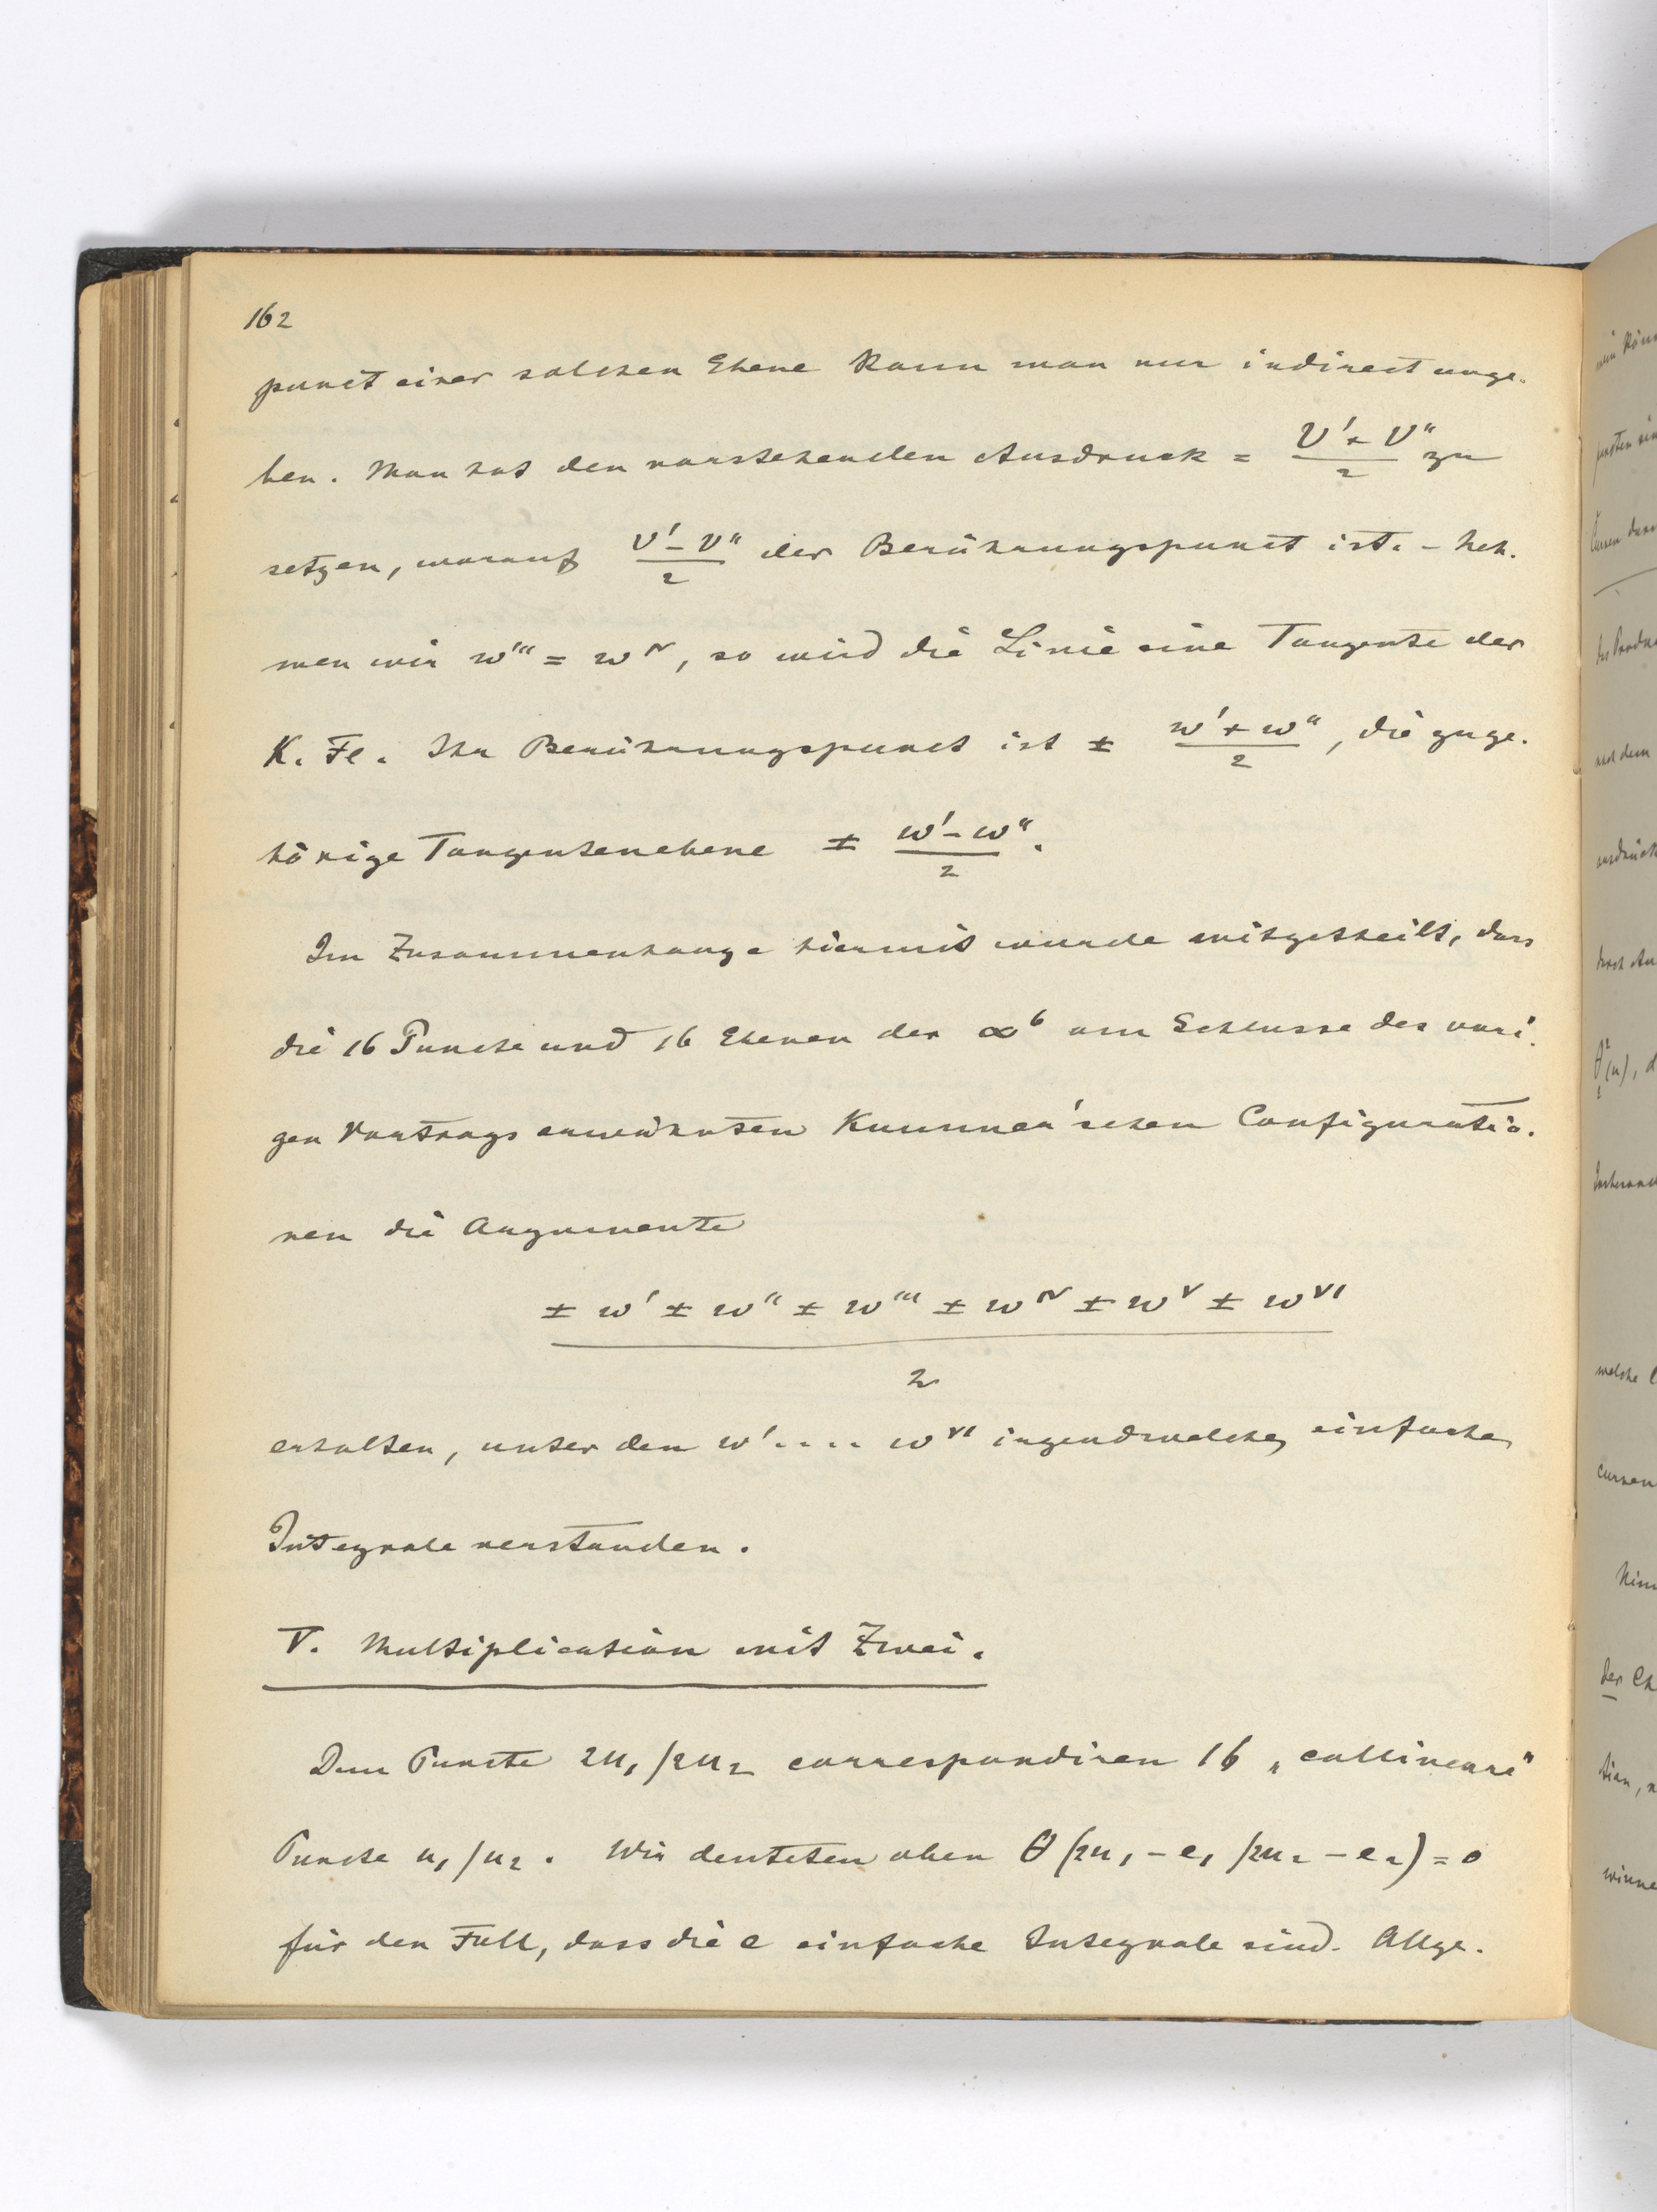 162
punct einer solchen Ebene kann man nur indirect ange-
ben. Man hat den vorstehenden Ausdruck = (v' + v'')/2 zu
setzen, worauf (v' - v'')/2 der Berührungspunct ist. - Neh-
men wir w''' = w^IV, so wird die Linie eine Tangente der
K. Fl. Ihr Berührungspunct ist ± (w' + w'')/2, die zuge-
hörige Tangentenebene ± (w' - w'')/2.
Im Zusammenhange hiermit wurde mitgetheilt, dass
die 16 Puncte und 16 Ebenen der ∞^6 am Schlusse des vori-
gen Vortrags erwähnten Kummer'schen Configuratio-
nen die Argumente
± w' ± w'' ± w''' ± w^IV ± w^V ± w^VI
2
erhalten, unter den w' .... w^VI irgendwelche einfache
Integrale verstanden.
V. Multiplication mit Zwei.
Dem Puncte 2u₁/2u₂ correspondiren 16 „collineare"
Puncte u₁/u₂. Wir deuteten oben θ(2u₁ - e₁/2u₂ - e₂) = 0
für den Fall, dass die e einfache Integrale sind. Allge-
mein
Curven
nach dem
ausdrück
θ²(u), d
welche
Curven
der Ch
tion,
winne